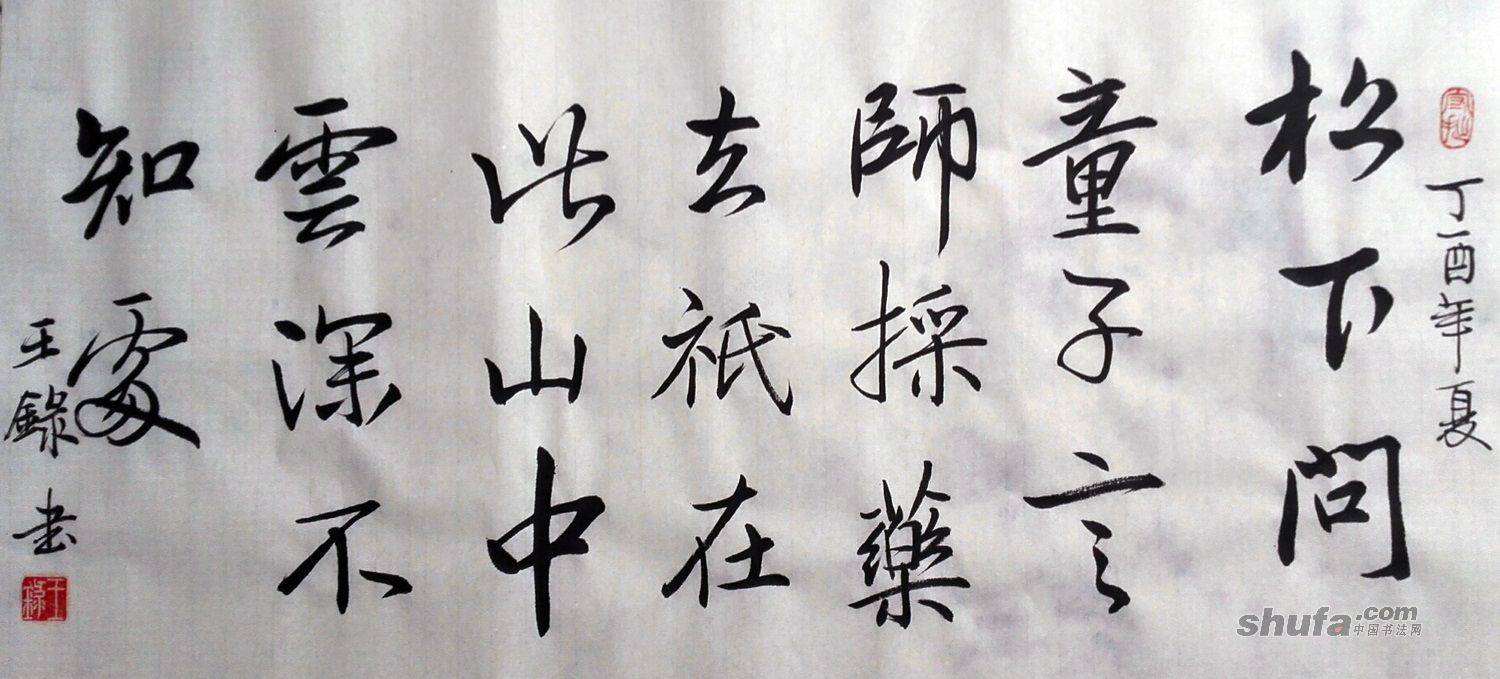 丁酉年夏
松下問
童子言
師採藥
去祇在
此山中
雲深不
知處
王錄書
王錄
shufa.com
中国书法网